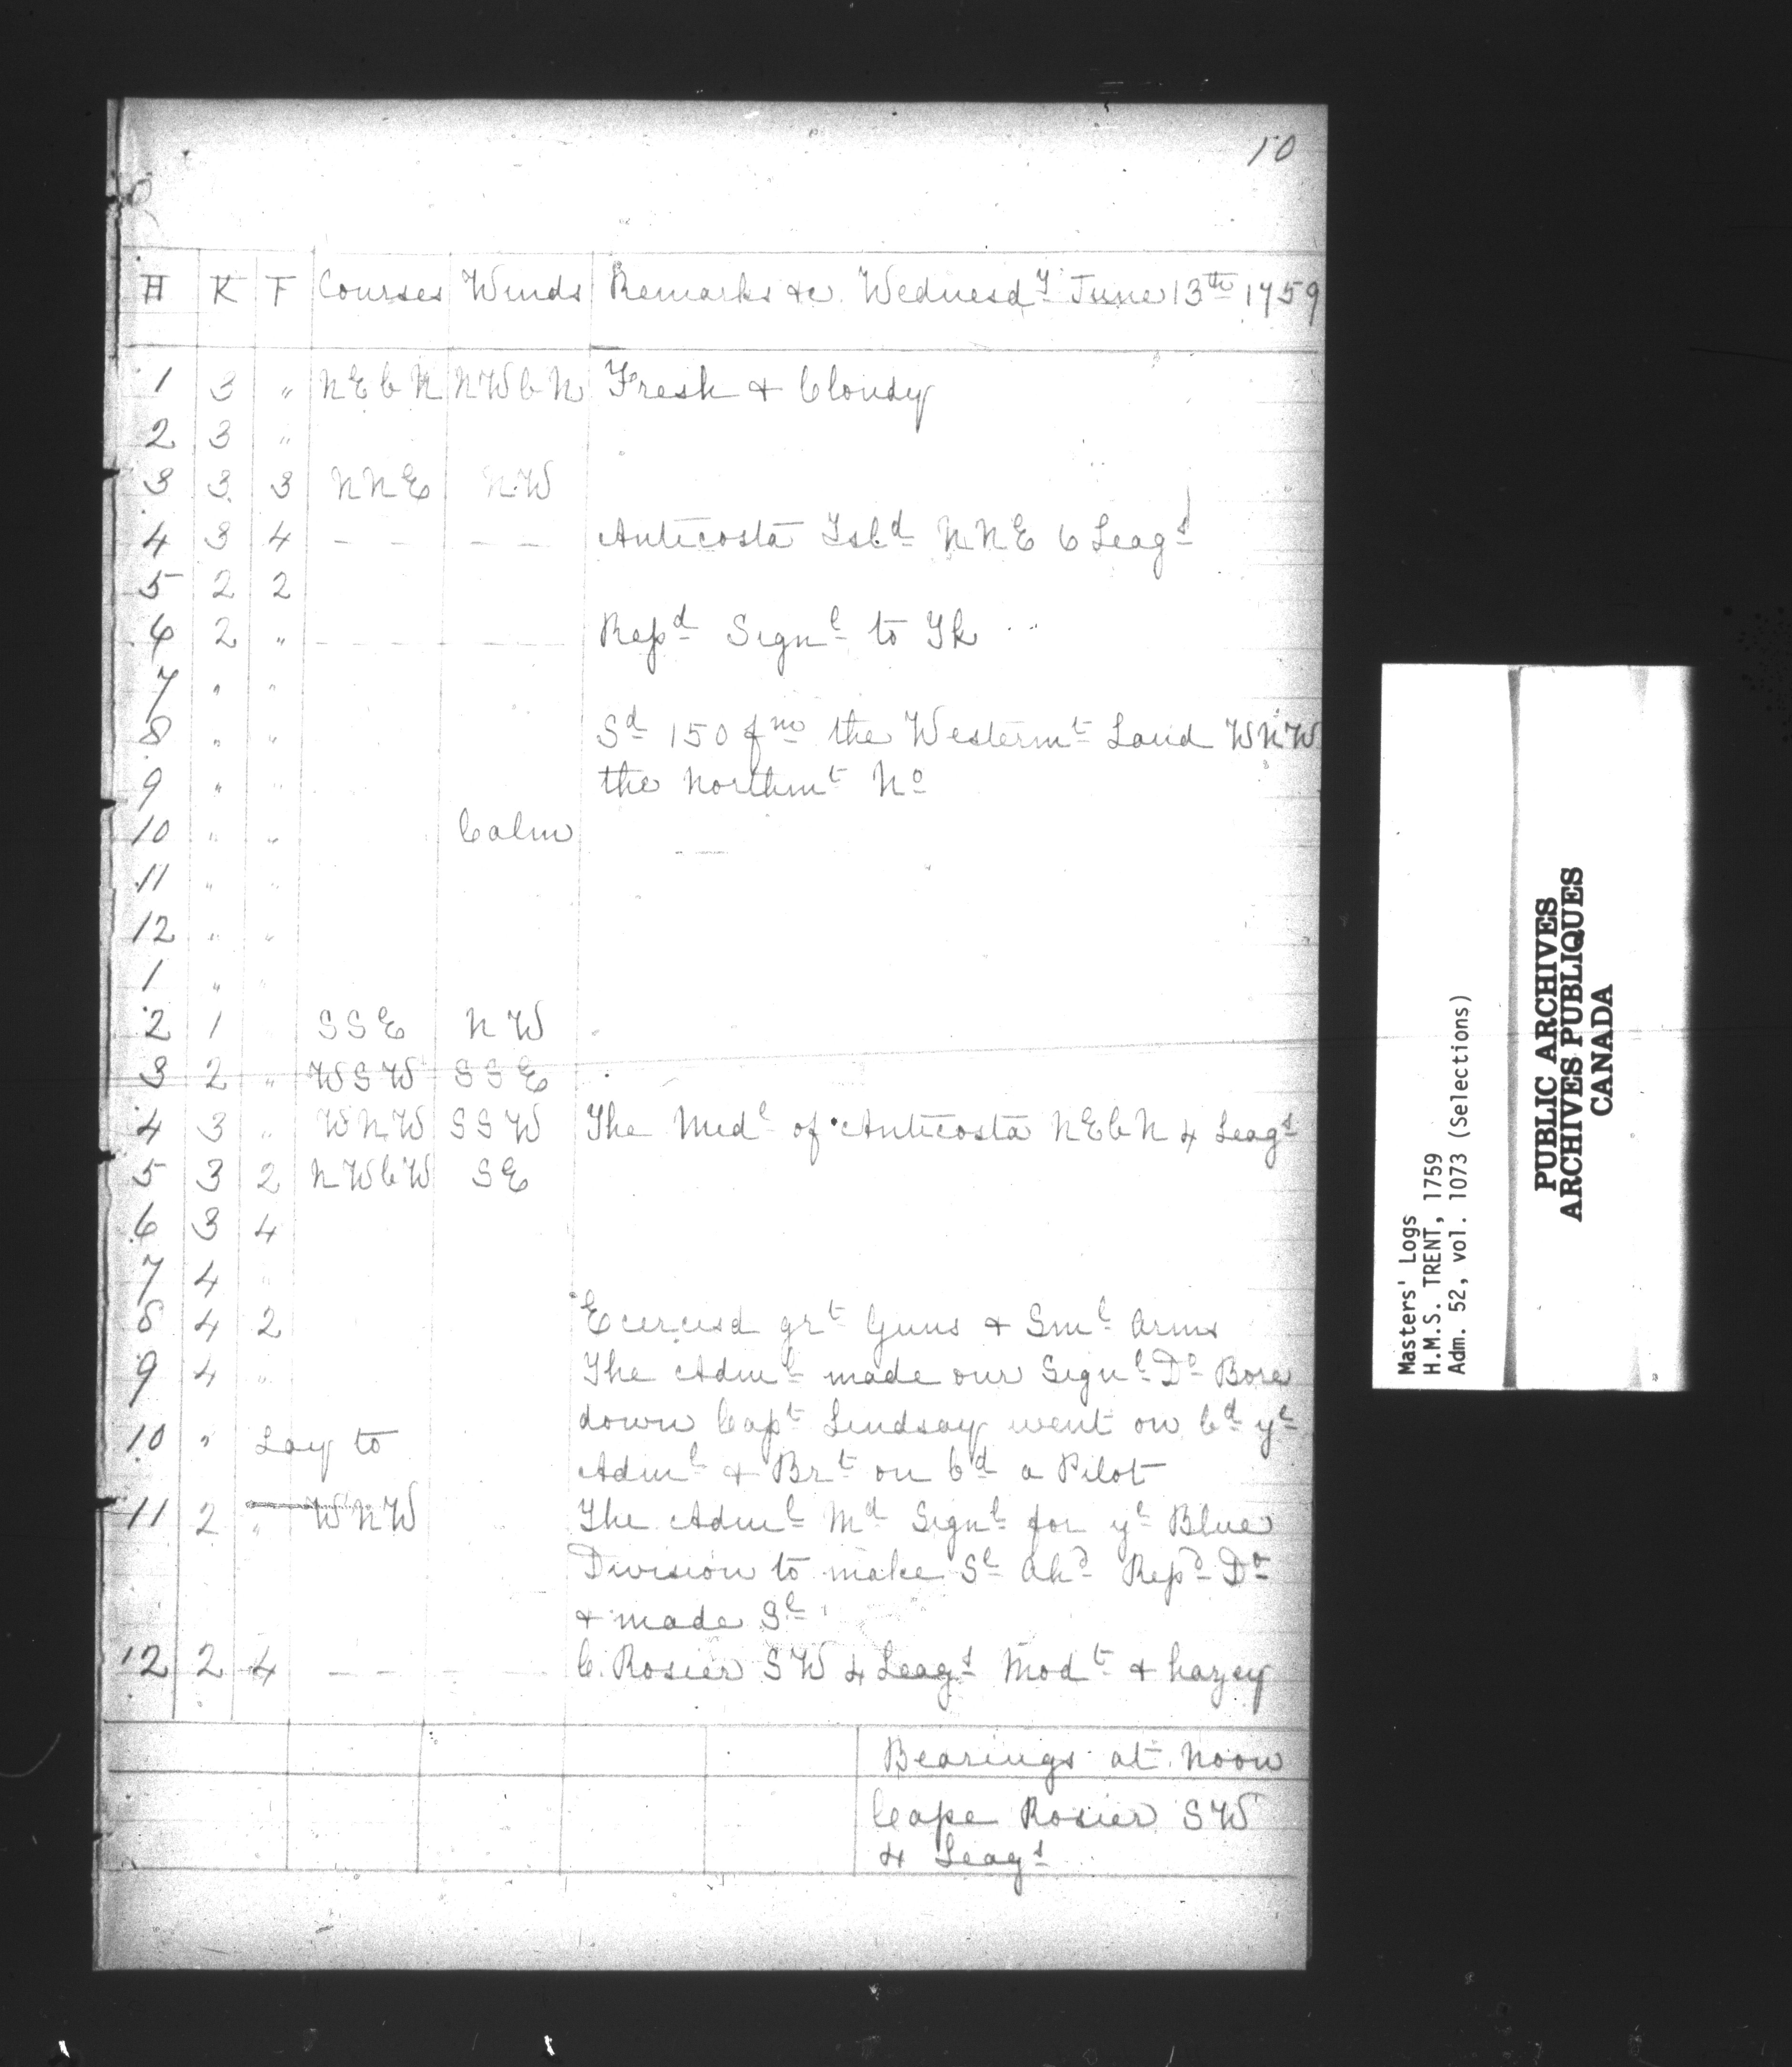 10
H K F Courses Winds Remarks &c. Wednesdy June 13th 1759
1 3 " NEbN NWbN Fresh & Cloudy
2 3 "
3 3 3 NNE NW
4 3 4 – – – – Anticosta Isld NNE 6 Leags
5 2 2
6 2 " – – – – Repd Signl to Tk
7 " "
8 " " Sd 150 fms the Westermt Land WNW
9 " " the Northmt No
10 " " Calm
11 " "
12 " "
1 " "
2 1 SSE NW
3 2 " WSW SSE
4 3 " WNW SSW The Midl of Anticosta NEbN 4 Leags
5 3 2 NWbW SE
6 3 4
7 4 "
8 4 2 Ecercisd grt Guns & Sml Arms
9 4 " The Adml made our Signl Do Bore
down Capt Lindsay went on bd ye
10 " Lay to
Adml & Brt on bd a Pilot
11 2 " WNW The Adml Md Signl for ye Blue
Division to make Sl Ahd Repd Do
& made Sl
12 2 4 – – – – C. Rosier SW 4 Leags Modt & hazey
Bearings at Noon
Cape Rosier SW
4 Leags
Masters' Logs
H.M.S. TRENT, 1759
Adm. 52, vol. 1073 (Selections)
PUBLIC ARCHIVES
ARCHIVES PUBLIQUES
CANADA